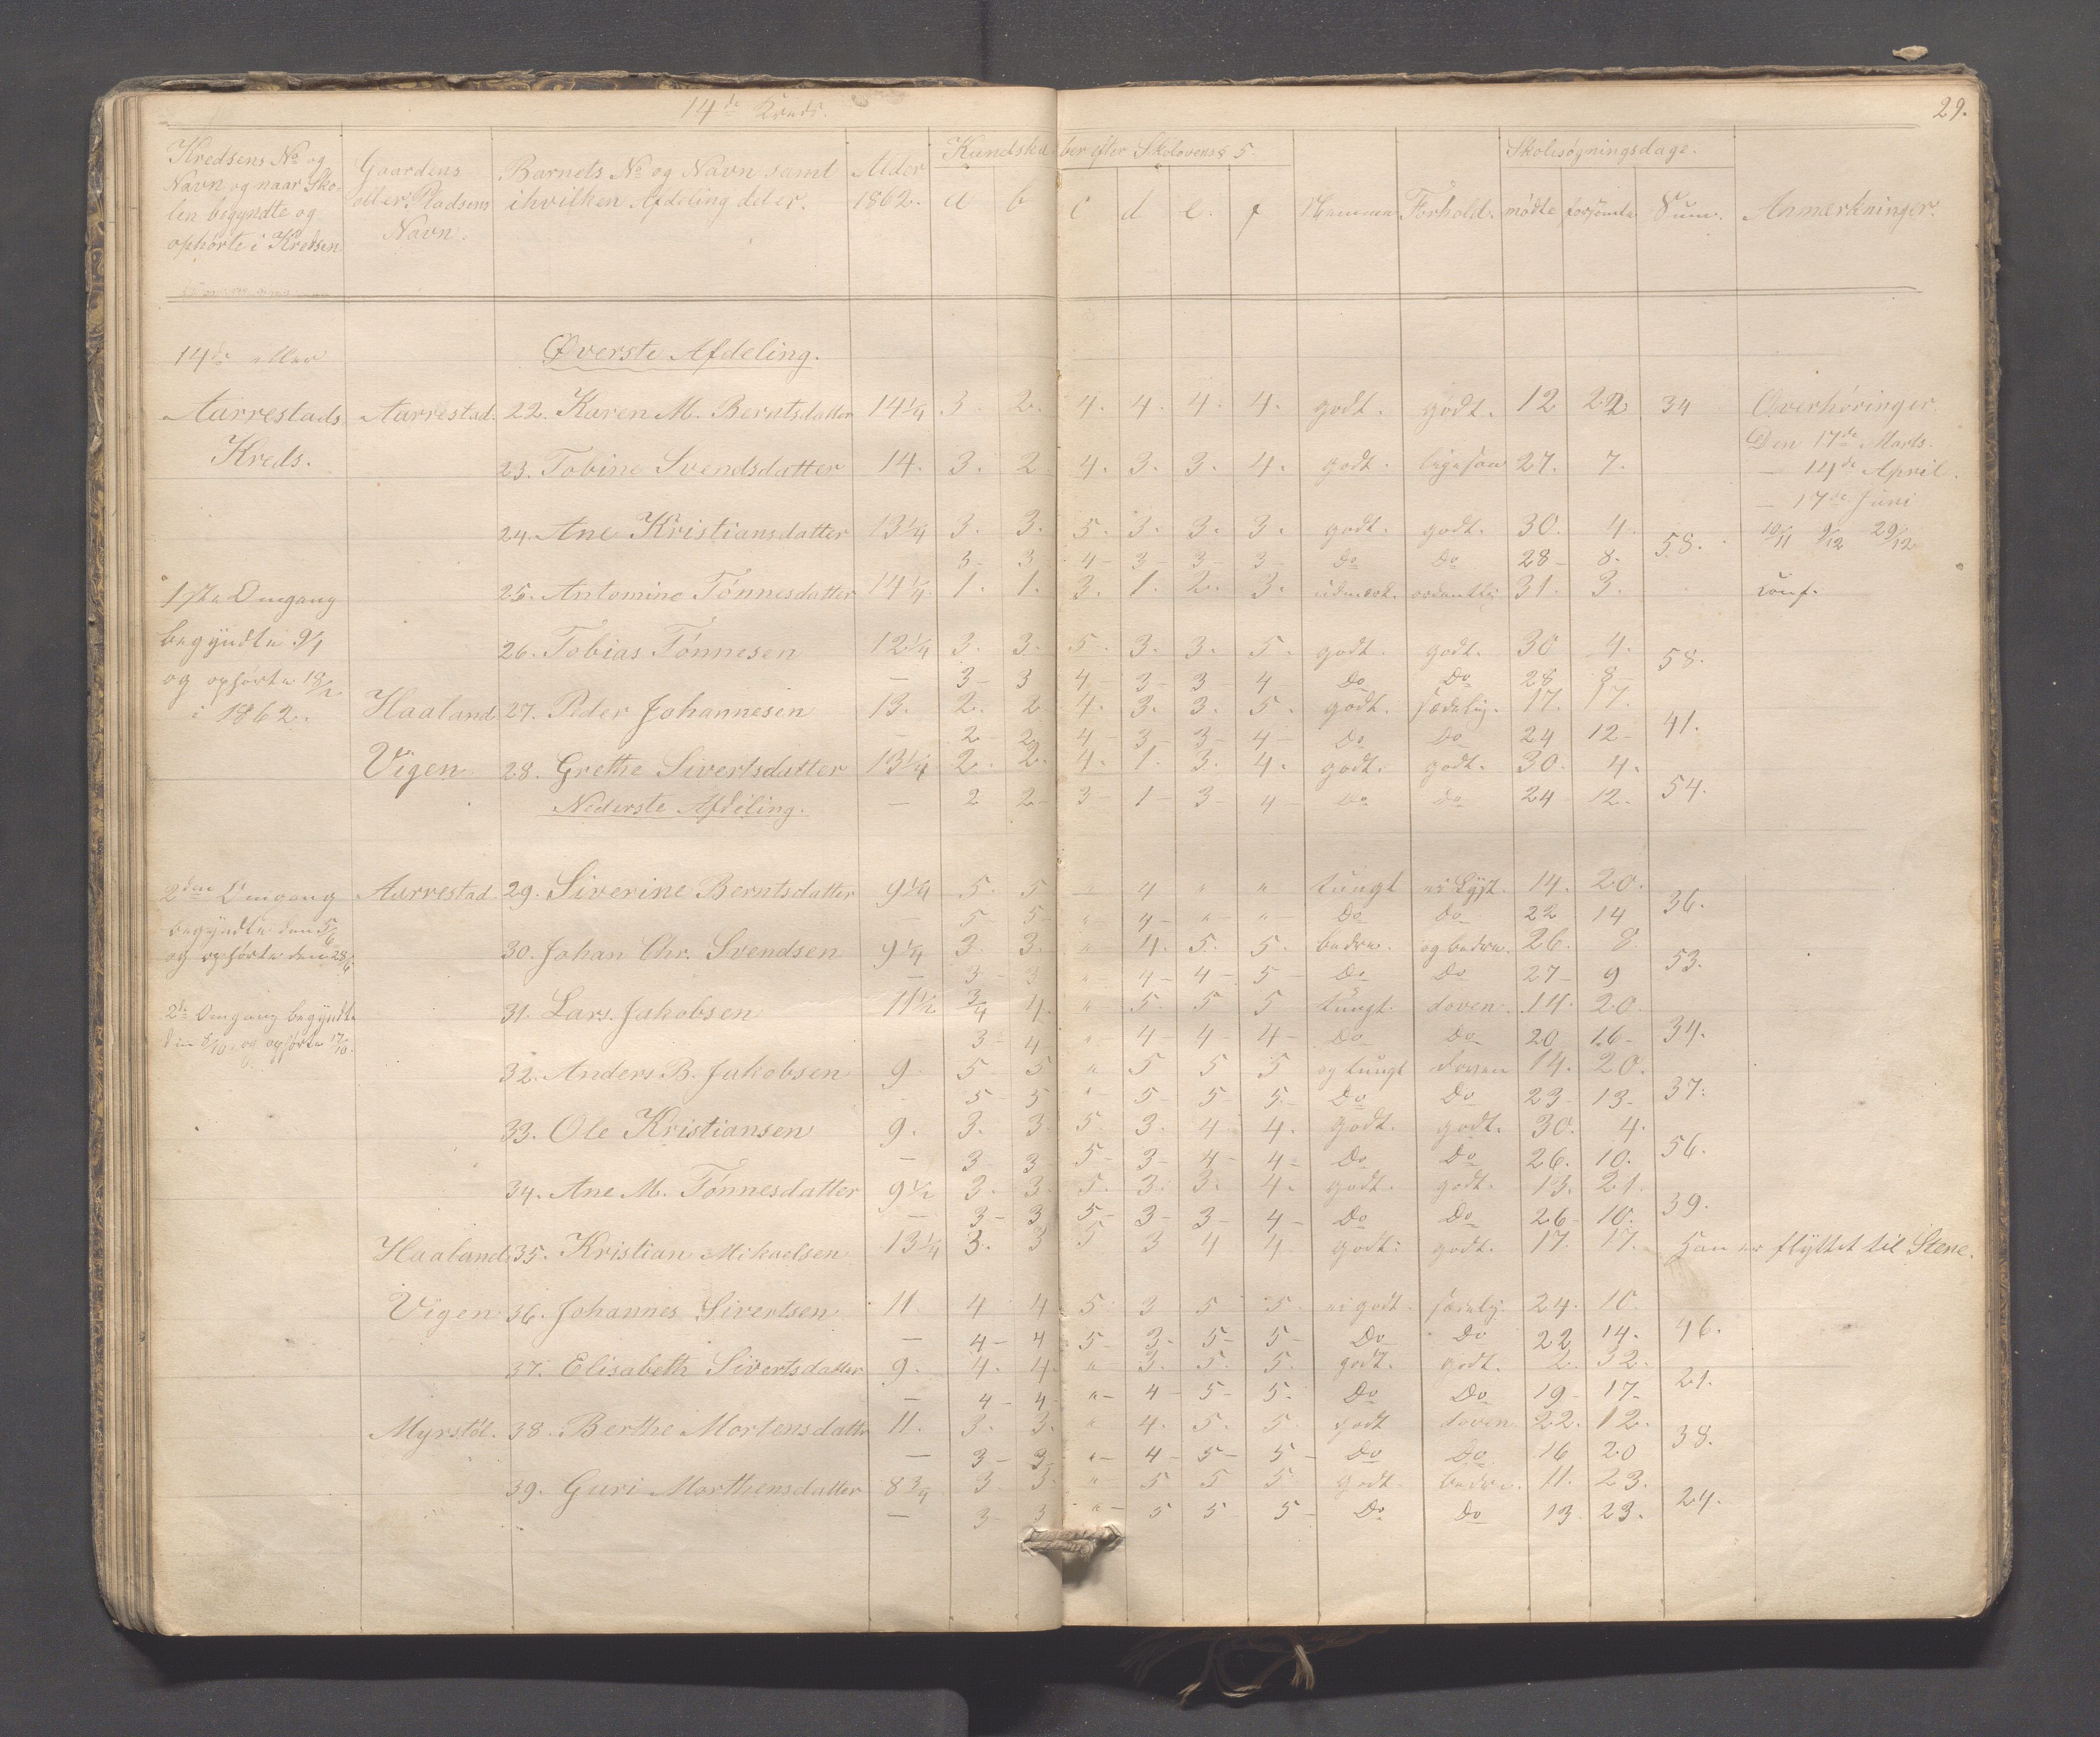 14de Kreds.
29.
Kredsens No og Navn og naar Skolen begyndte og ophørte i Kredsen
Gaardens eller Pladsens Navn.
Barnets No og Navn samt i hvilken Afdeling det er.
Alder 1862.
Kundskaber efter Skolovens § 5.
a b c d e. f
Evne Forhold. mødte forsømte Sum. Anmærkninger.
Skolesøgningsdage.
14de eller Øverste Afdeling.
Aarrestads Aarrestad. 22. Karen M. Berntsdatter 14 1/4 3 2. 4. 4. 4. 4. godt. godt. 12 22 34 Overhøringer.
Kreds. Den 17de Marts.
23. Tobine Svendsdatter 14. 3. 2 4. 3. 3. 4. godt. ligesaa 27. 7. – 14de April.
– 17de Juni
24. Ane Kristiansdatter 13 1/4 3. 3. 5. 3. 3. 3. godt. godt. 30. 4. 58. 10/11 9/12 29/12
3- 3 4- 3- 3- 3- Do Do 28- 8-
1ste Omgang 25. Antomine Tønnesdatter 14 1/4 1. 1. 3. 1. 2. 3. udmerk. ordentlig 31. 3. conf.
begyndte 9/1 26. Tobias Tønnesen 12 1/4 3. 3. 5. 3. 3. 5. godt. godt. 30 4. 58.
og ophørte 18/2 – 3- 3 4- 3- 3- 4 Do Do 28 8-
i 1862. Haaland 27. Peder Johannesen 13. 2. 2 4. 3. 3. 5. godt. sædelig. 17. 17. 41.
– 2- 2 4- 3- 3- 4- Do Do 24 12-
Vigen 28. Grethe Sivertsdatter 13 1/4 2. 2. 4. 1. 3. 4. godt. godt. 30. 4. 54.
Nederste Afdeling. – 2 2- 3- 1- 3- 4 Do Do 24 12-
2den Omgang Aarrestad 29. Siverine Berntsdatter 9 1/4 5. 5 " 4 " " tungt ei Lyst. 14. 20. 36.
begyndte den 5/6 – 5- 5- "- 4- "- "- Do Do 22 14
og ophørte den 28/6 30. Johan Chr. Svendsen 9 1/4 3. 3. " 4. 5. 5. bedre. og bedre. 26. 8. 53.
– 3- 3 "- 4- 4- 5- Do Do 27- 9
2de Omgang begyndte 31. Lars Jakobsen 11 1/2 3/4 4. " 5. 5 5 tungt. doven. 14. 20. 34.
den 8/10 og ophørte 17/10. 3- 4 "- 4- 4- 4- Do Do 20 16-
32. Anders B. Jakobsen 9. 5 5 " 5 5 5 og tungt doven 14. 20. 37.
5- 5 "- 5- 5- 5- Do Do 23- 13-
33. Ole Kristiansen 9. 3. 3. 5. 3. 4. 4. godt. godt. 30. 4. 56.
– 3 3- 5- 3- 4- 4- Do Do 26. 10.
34. Ane M. Tønnesdatter 9 1/2 3. 3. 5. 3. 3. 4. godt. godt. 13. 21. 39.
– 3- 3 5- 3- 3- 4- Do Do 26- 10.
Haaland 35. Kristian Mikaelsen 13 1/4 3. 3 5 3 4 4 godt. godt. 17. 17. Han er flyttet til Stene.
Vigen 36. Johannes Sivertsen 11 4 4 5. 3 5 5. ei godt. sædelig. 24. 10. 46.
– 4- 4 5- 3- 5- 5- Do Do 22 14-
37. Elisabeth Sivertsdatter 9. 4. 4. " 3. 5. 5. godt. godt. 2. 32. 21.
– 4- 4- "- 4- 5- 5- Do Do 19- 17-
Myrstöl. 38. Berthe Mortensdatter 11. 3. 3. " 4. 5. 5 godt doven. 22. 12. 38.
– 3- 3 "- 4- 5- 5- Do Do 16 20
39. Guri Morthensdatter 8 3/4 3 3. " 5 5 5 godt. bedre. 11. 23. 24.
– 3 3 "- 5 5 5- Do Do 13 23.